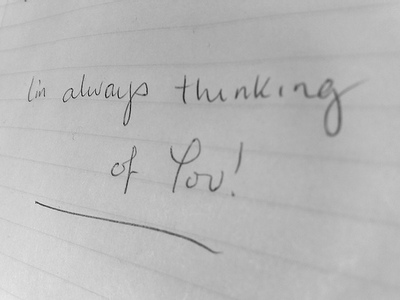 I'm always thinking
of You!